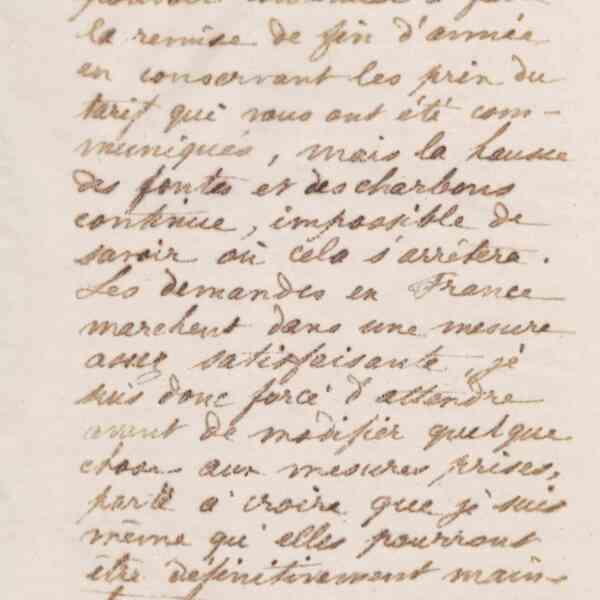 la remise de fin d'année
en conservant les prix du
tarif qui vous ont été com-
muniqués, mais la hausse
des fontes et des charbons
continue, impossible de
savoir où cela s'arrêtera.
Les demandes en France
marchent dans une mesure
assez satisfaisante, je
suis donc forcé d'attendre
avant de modifier quelque
chose aux mesures prises,
porté à croire que je suis
même qu'elles pourront
être définitivement main-